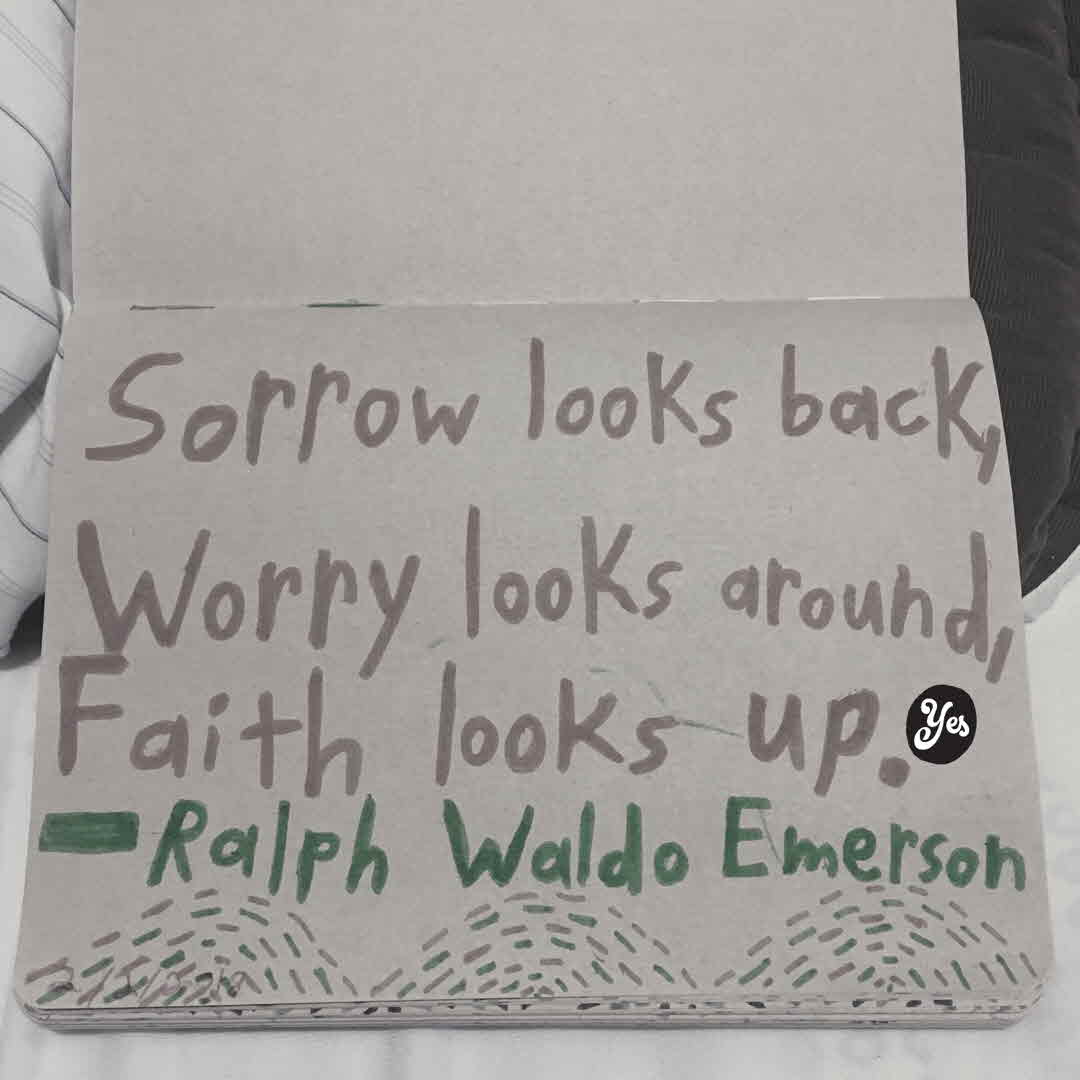 Sorrow looks back,
Worry looks around,
Faith looks up.
Yes
-Ralph Waldo Emerson